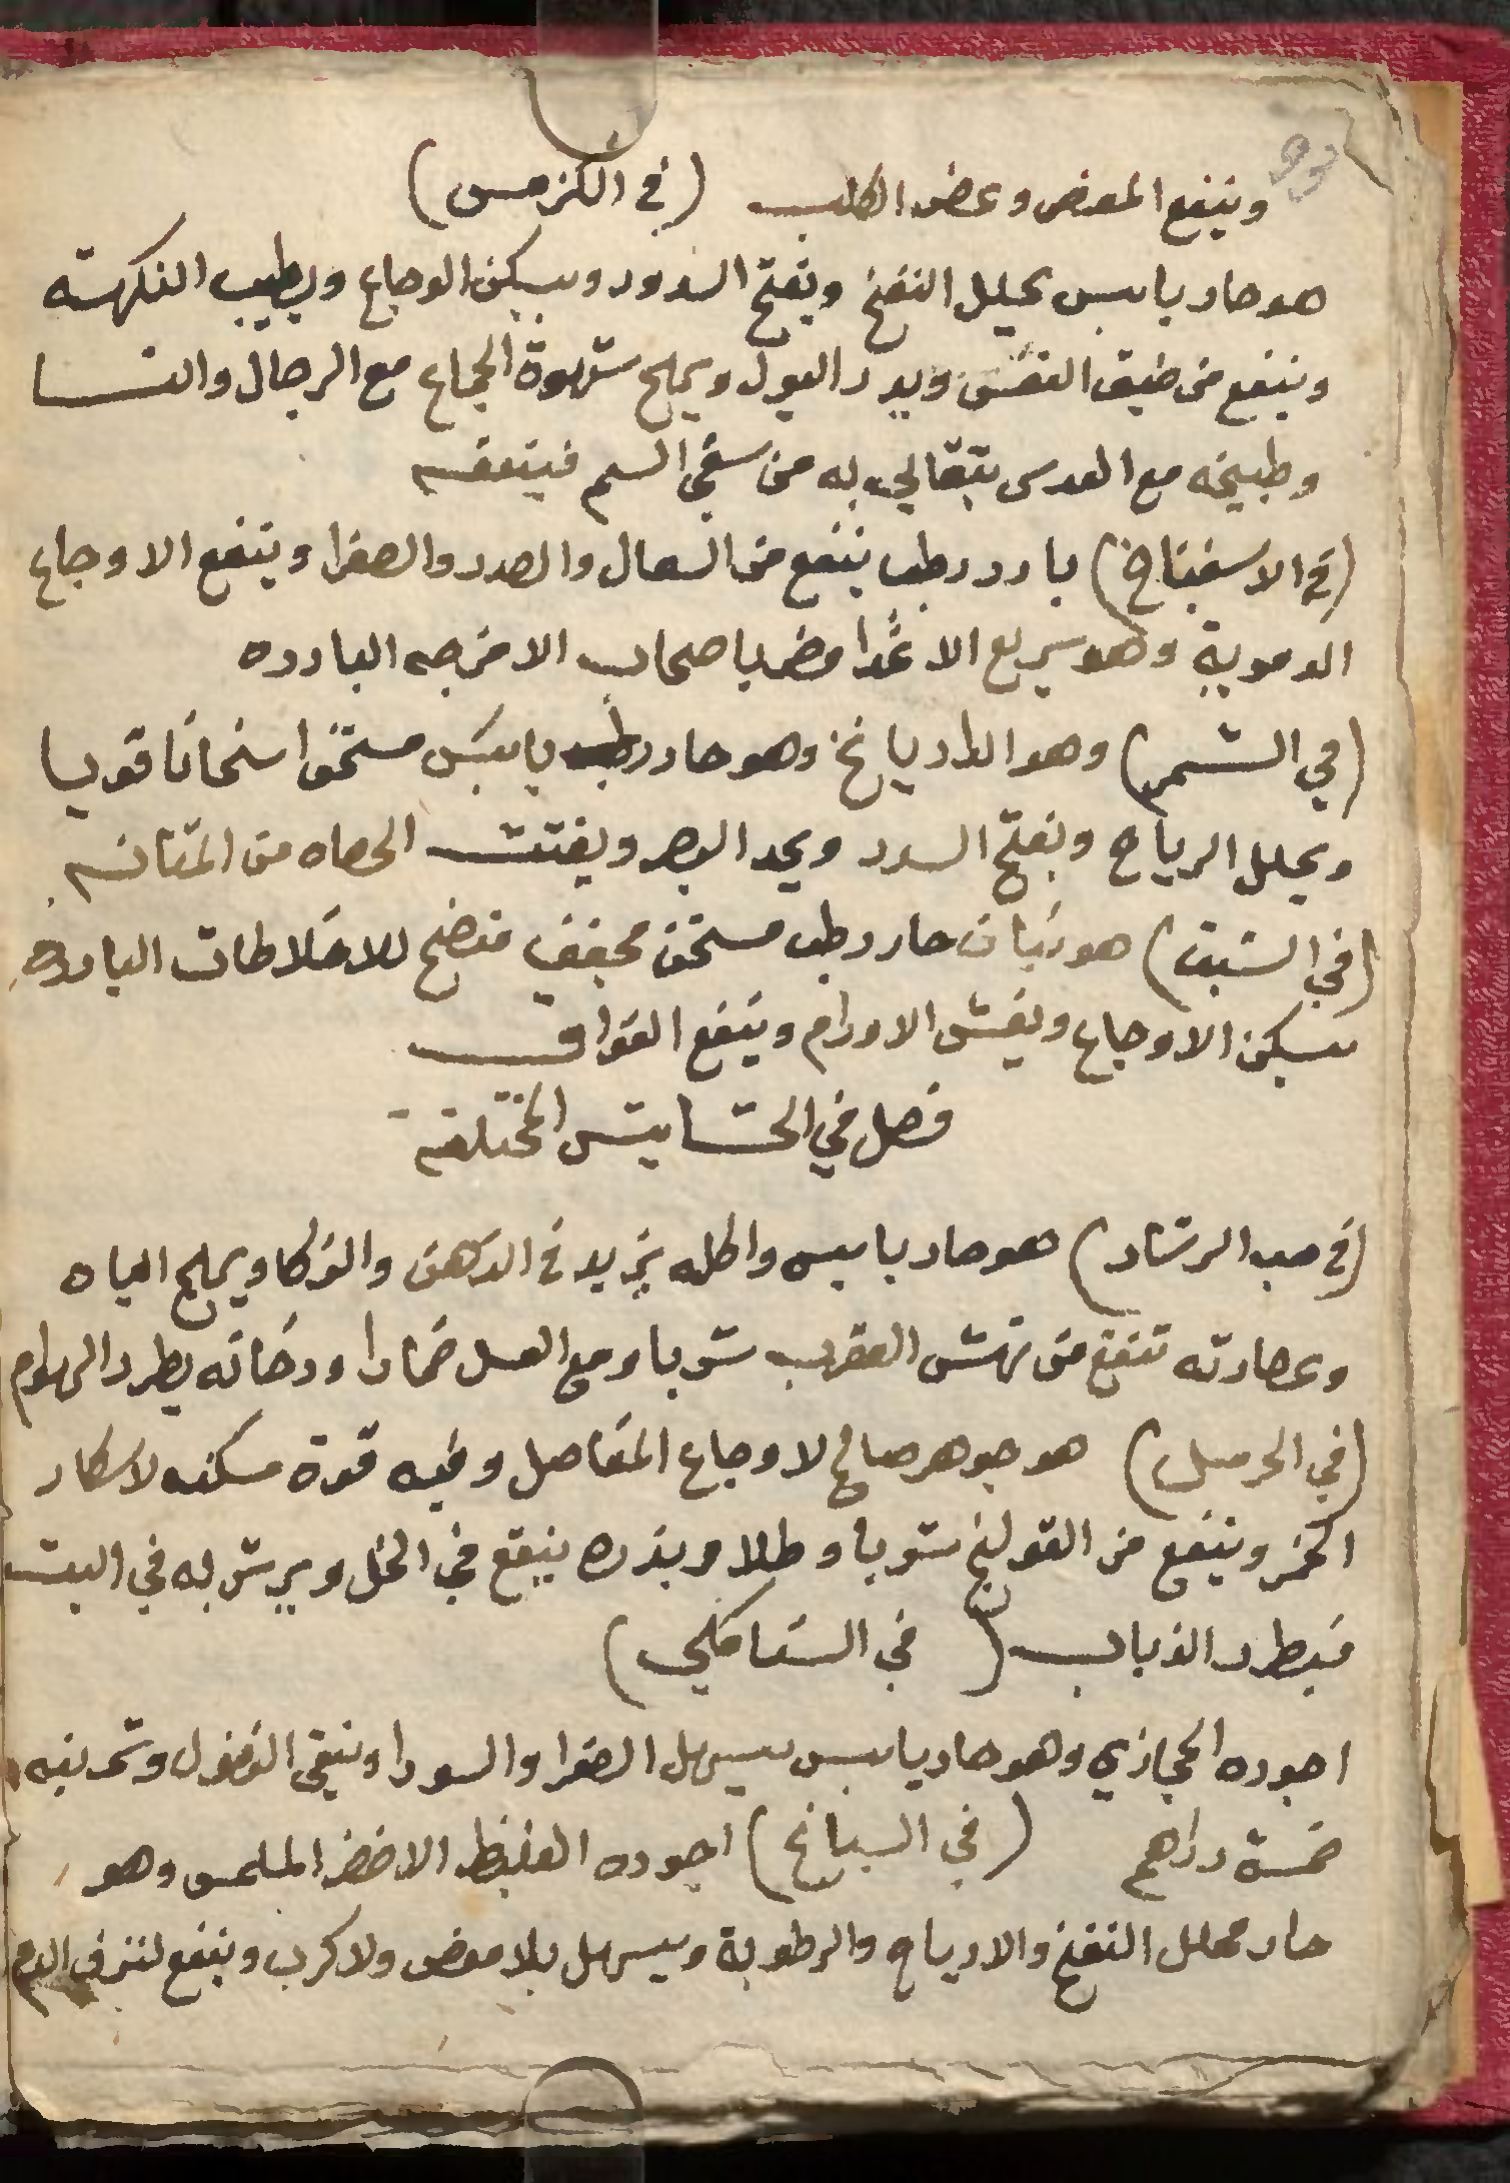 وينفع المغص وعض الكلب (في الكزمس)
هو حار يابس يحلل النفخ ويفتح السدود ويسكن الوجاع ويطيب النكهته
وينفع من ضيق النفس ويدر البول ويملح شهوة الجماع مع الرجال والنسا
وطبيخه مع العدس يتقالي به من سقي السم فينفعه
(في الاسفيناخ) بارد رطب ينفع من السعال والصدر والصفرا وينفع الاوجاع
الدمويه وهو سريع الاغدا مضر باصحاب الامزجه البارده
(في الشمر) وهو الراديانخ وهو حار رطب يابس مسخن اسخانا قويا
ويحلل الرياح ويفتح السدد ويحد البصر ويفتت الحصاه من المثانه
(في الشبت) هو نبات حار رطب مسخن مجفف منضج للاخلاطات البارده
يسكن الاوجاع ويفش الاورام وينفع الفواق
فصل في الحشايش المختلفة
(في حب الرشاد) هو حار يابس واكله يزيد في الذهن والذكا ويملح الباه
وعصارته تنفع من نهش العقرب شربا ومع العسل ضمادا ودخانه يطرد الهوام
(في الحرمل) هو جوهر صالح لاوجاع المفاصل وفيه قوة مسكنه لاسكار
الخمر وينفع من القولنج شوبا وطلا وبذره ينقع في الخل ويرش به في البيت
فيطرد الذباب (في السنامكي)
اجوده الحجازي وهو حار يابس يسهل الصفرا والسودا وينقي الفضول وشربته
خمسة دراهم (في السبانخ) اجوده الغليظ الاخضر الملمس وهو
حار محلل النفخ والارياح والرطوبة ويسهل بلا مغص ولا كرب وينفع لنزف الدم